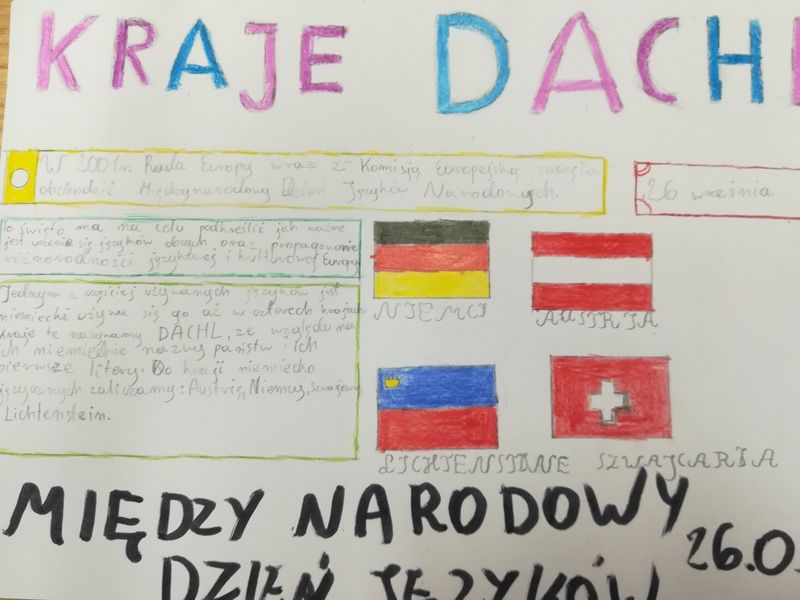 KRAJE DACH
W 2001r. Rada Europy wraz z Komisją Europejską zaczęła
obchodzić Międzynarodowy Dzień Języków Narodowych.
26 września
To święto ma na celu podkreślić jak ważne
jest uczenie się języków obcych oraz propagowanie
różnorodności językowej i kulturowej Europy
Jednym z częściej używanych języków jest
niemiecki używa się go aż w czterech krajach
kraje te nazywamy DACHL, ze względu na
ich niemieckie nazwy państw i ich
pierwsze litery. Do kraji niemiecko
języcznych zaliczamy: Austrię, Niemcy, Szwajcarię
Lichtenstein.
NIEMCI
AUSTRIA
LICHTENSIDNE
SZWAJCARIA
MIĘDZY NARODOWY
DZIEŃ JĘZYKÓW
26.0